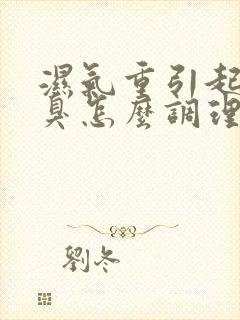 濕氣重引起
臭怎麼調理
劉冬